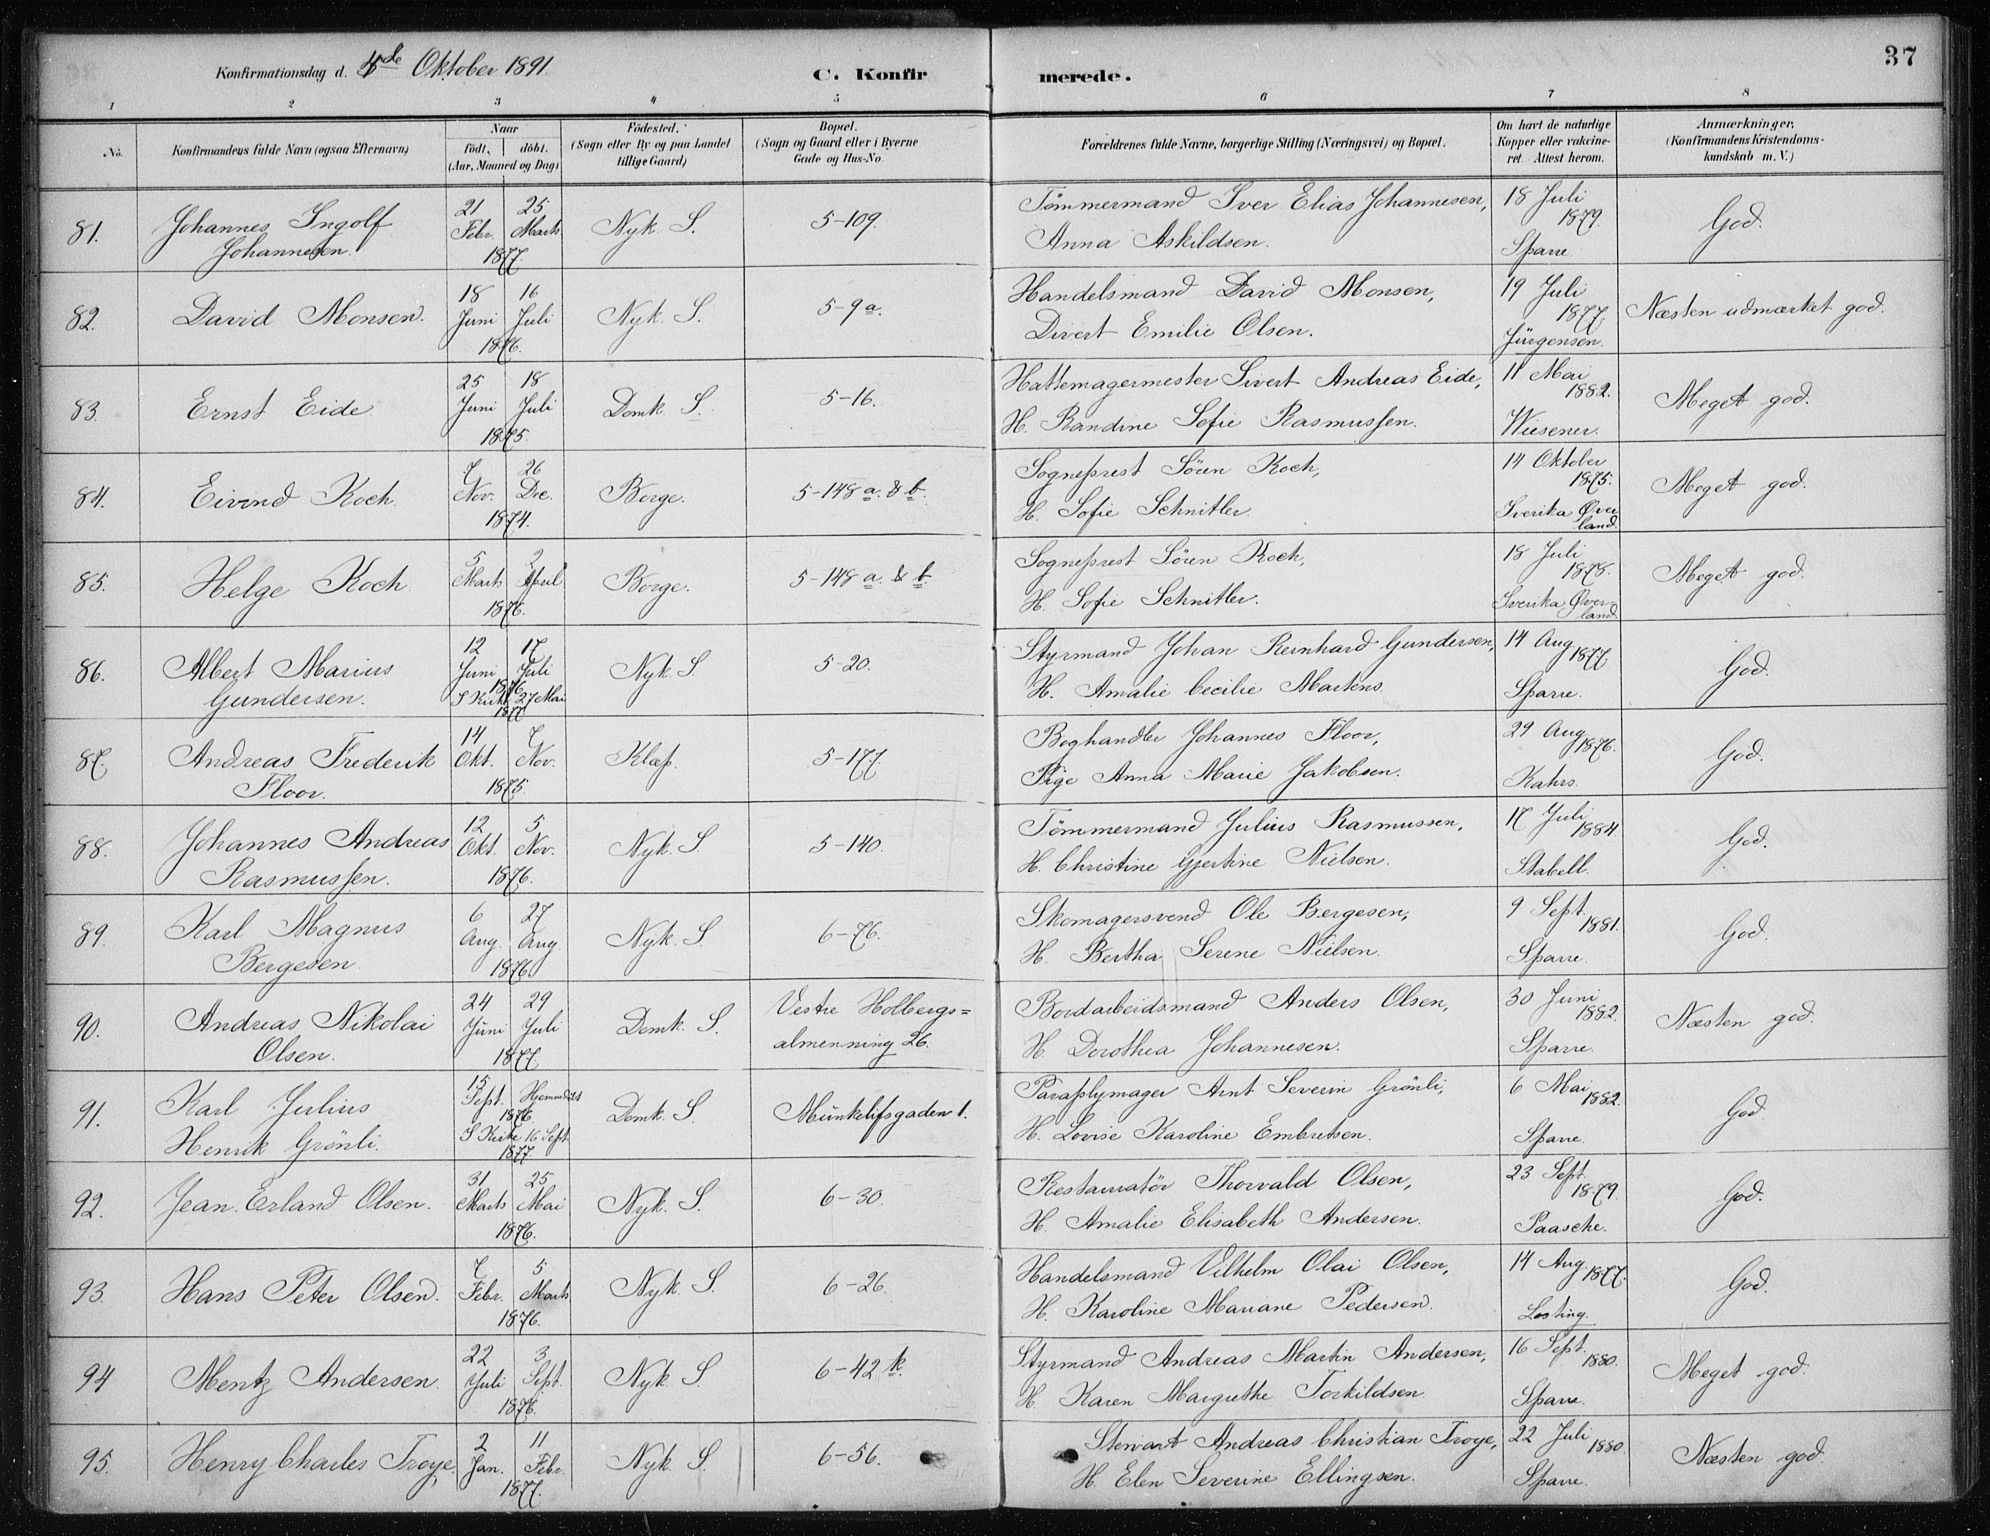 37
Konfirmationsdag d. 4de Oktober 1891.
C. Konfirmerede.
1 2 3 4 5 6 7 8
No. Konfirmandens fulde Navn (ogsaa Efternavn)
Naar Födt, döbt. (Aar, Maaned og Dag)
Födested. (Sogn eller By og paa Landet tillige Gaard)
Bopæl. (Sogn og Gaard eller i Byerne Gade og Hus-No.
Forældrenes fulde Navne, borgerlige Stilling (Næringsvei) og Bopæl.
Om havt de naturlige Kopper eller vakcineret. Attest herom.
Anmærkninger, (Konfirmandens Kristendomskundskab m. V.)
81. Johannes Ingolf Johannesen. 21 Febr. 25 Marts 1877. Nyk. S. 5-109. Tömmermand Iver Elias Johannesen, Anna Askildsen. 18 Juli 1879. Sparre. God.
82. David Monsen. 18 Juni 16 Juli 1876. Nyk. S. 5-9 a. Handelsmand David Monsen, Divert Emilie Olsen. 19 Juli 1877. Jürgensen. Næsten udmærket god.
83. Ernst Eide 25 Juni 18 Juli 1875. Domk. S. 5-16. Hattemagermester Sivert Andreas Eide, H. Randine Sofie Rasmussen. 11 Mai 1882. Wiesener. Meget god.
84. Eivind Koch. 7 Nov. 26 Dec. 1874. Borge. 5-148 a. & b. Sogneprest Sören Koch, H. Sofie Schnitler. 14 Oktober 1875. Sverika Øverland. Meget god.
85. Helge Koch 5 Marts 2 April 1876. Borge. 5-148 a. & b. Sogneprest Sören Koch, H. Sofie Schnitler. 18 Juli 1878. Sverika Øverland. Meget god.
86. Albert Marius Gundersen. 12 Juni 17 Juli 1876 S Kirke 27 Mai 1877 Nyk. S 5-20. Styrmand Johan Reinhard Gundersen, H. Amalie Cecilie Martens. 14 Aug 1877 Sparre. God.
87. Andreas Frederik Floor. 14 Okt. 7 Nov. 1875. Klæp. 5-177. Boghandler Johannes Floor, Pige Anna Marie Jakobsen. 29 Aug 1876. Kahrs. God.
88. Johannes Andreas Rasmussen. 12 Okt. 5 Nov. 1876. Nyk. S 5-140. Tömmermand Julius Rasmussen, H. Christine Gjertine Nielsen. 17 Juli 1884. Stabell. God.
89. Karl Magnus Bergesen. 6 Aug. 27 Aug. 1876. Nyk. S. 6-76. Skomagersvend Ole Bergesen, H. Bertha Serene Nielsen. 9 Sept. 1881. Sparre. God.
90. Andreas Nikolai Olsen. 24 Juni 29 Juli 1877. Domk. S. Vestre Holbergs=almenning 26. Bordarbeidsmand Anders Olsen, H. Dorothea Johannesen. 30 Juni 1882. Sparre. Næsten god.
91. Karl Julius Henrik Grönli. 15 Sept. Hjemmdöbt 1876 S Kirke 16 Sept. 1877 Domk. S. Munkelifsgaden 1. Paraplymager Arnt Severin Grönli, H. Lovise Karoline Embretsen. 6 Mai 1882. Sparre. God.
92. Jean Erland Olsen. 31 Marts 25 Mai 1876. Nyk. S. 6-30. Restauratör Thorvald Olsen, H. Amalie Elisabeth Andersen. 23 Sept. 1879. Paasche. God.
93. Hans Peter Olsen. 7 Febr. 5 Marts 1876. Nyk. S. 6-26. Handelsmand Vilhelm Olai Olsen, H. Karoline Mariane Pedersen. 14 Aug. 1877. Losting. God.
94 Mentz Andersen. 22 Juli 3 Sept. 1876. Nyk. S. 6-42 k. Styrmand Andreas Martin Andersen, H. Karen Margrethe Torkildsen. 16 Sept. 1880. Sparre. Meget god.
95. Henry Charles Troye, 2 Jan. 11 Febr. 1877. Nyk. S. 6-56. Stewart Andreas Christian Troye, H. Elen Severine Ellingsen. 22 Juli 1880. Sparre. Næsten god.